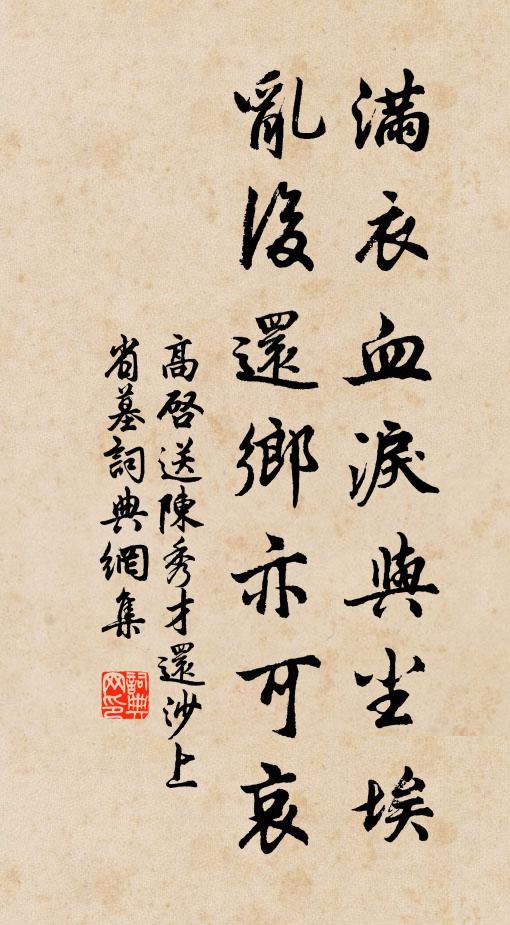 滿衣血淚與尘埃
亂後還鄉亦可哀
高啓送陳秀才還沙上
省墓詞典網集
詞典
网印